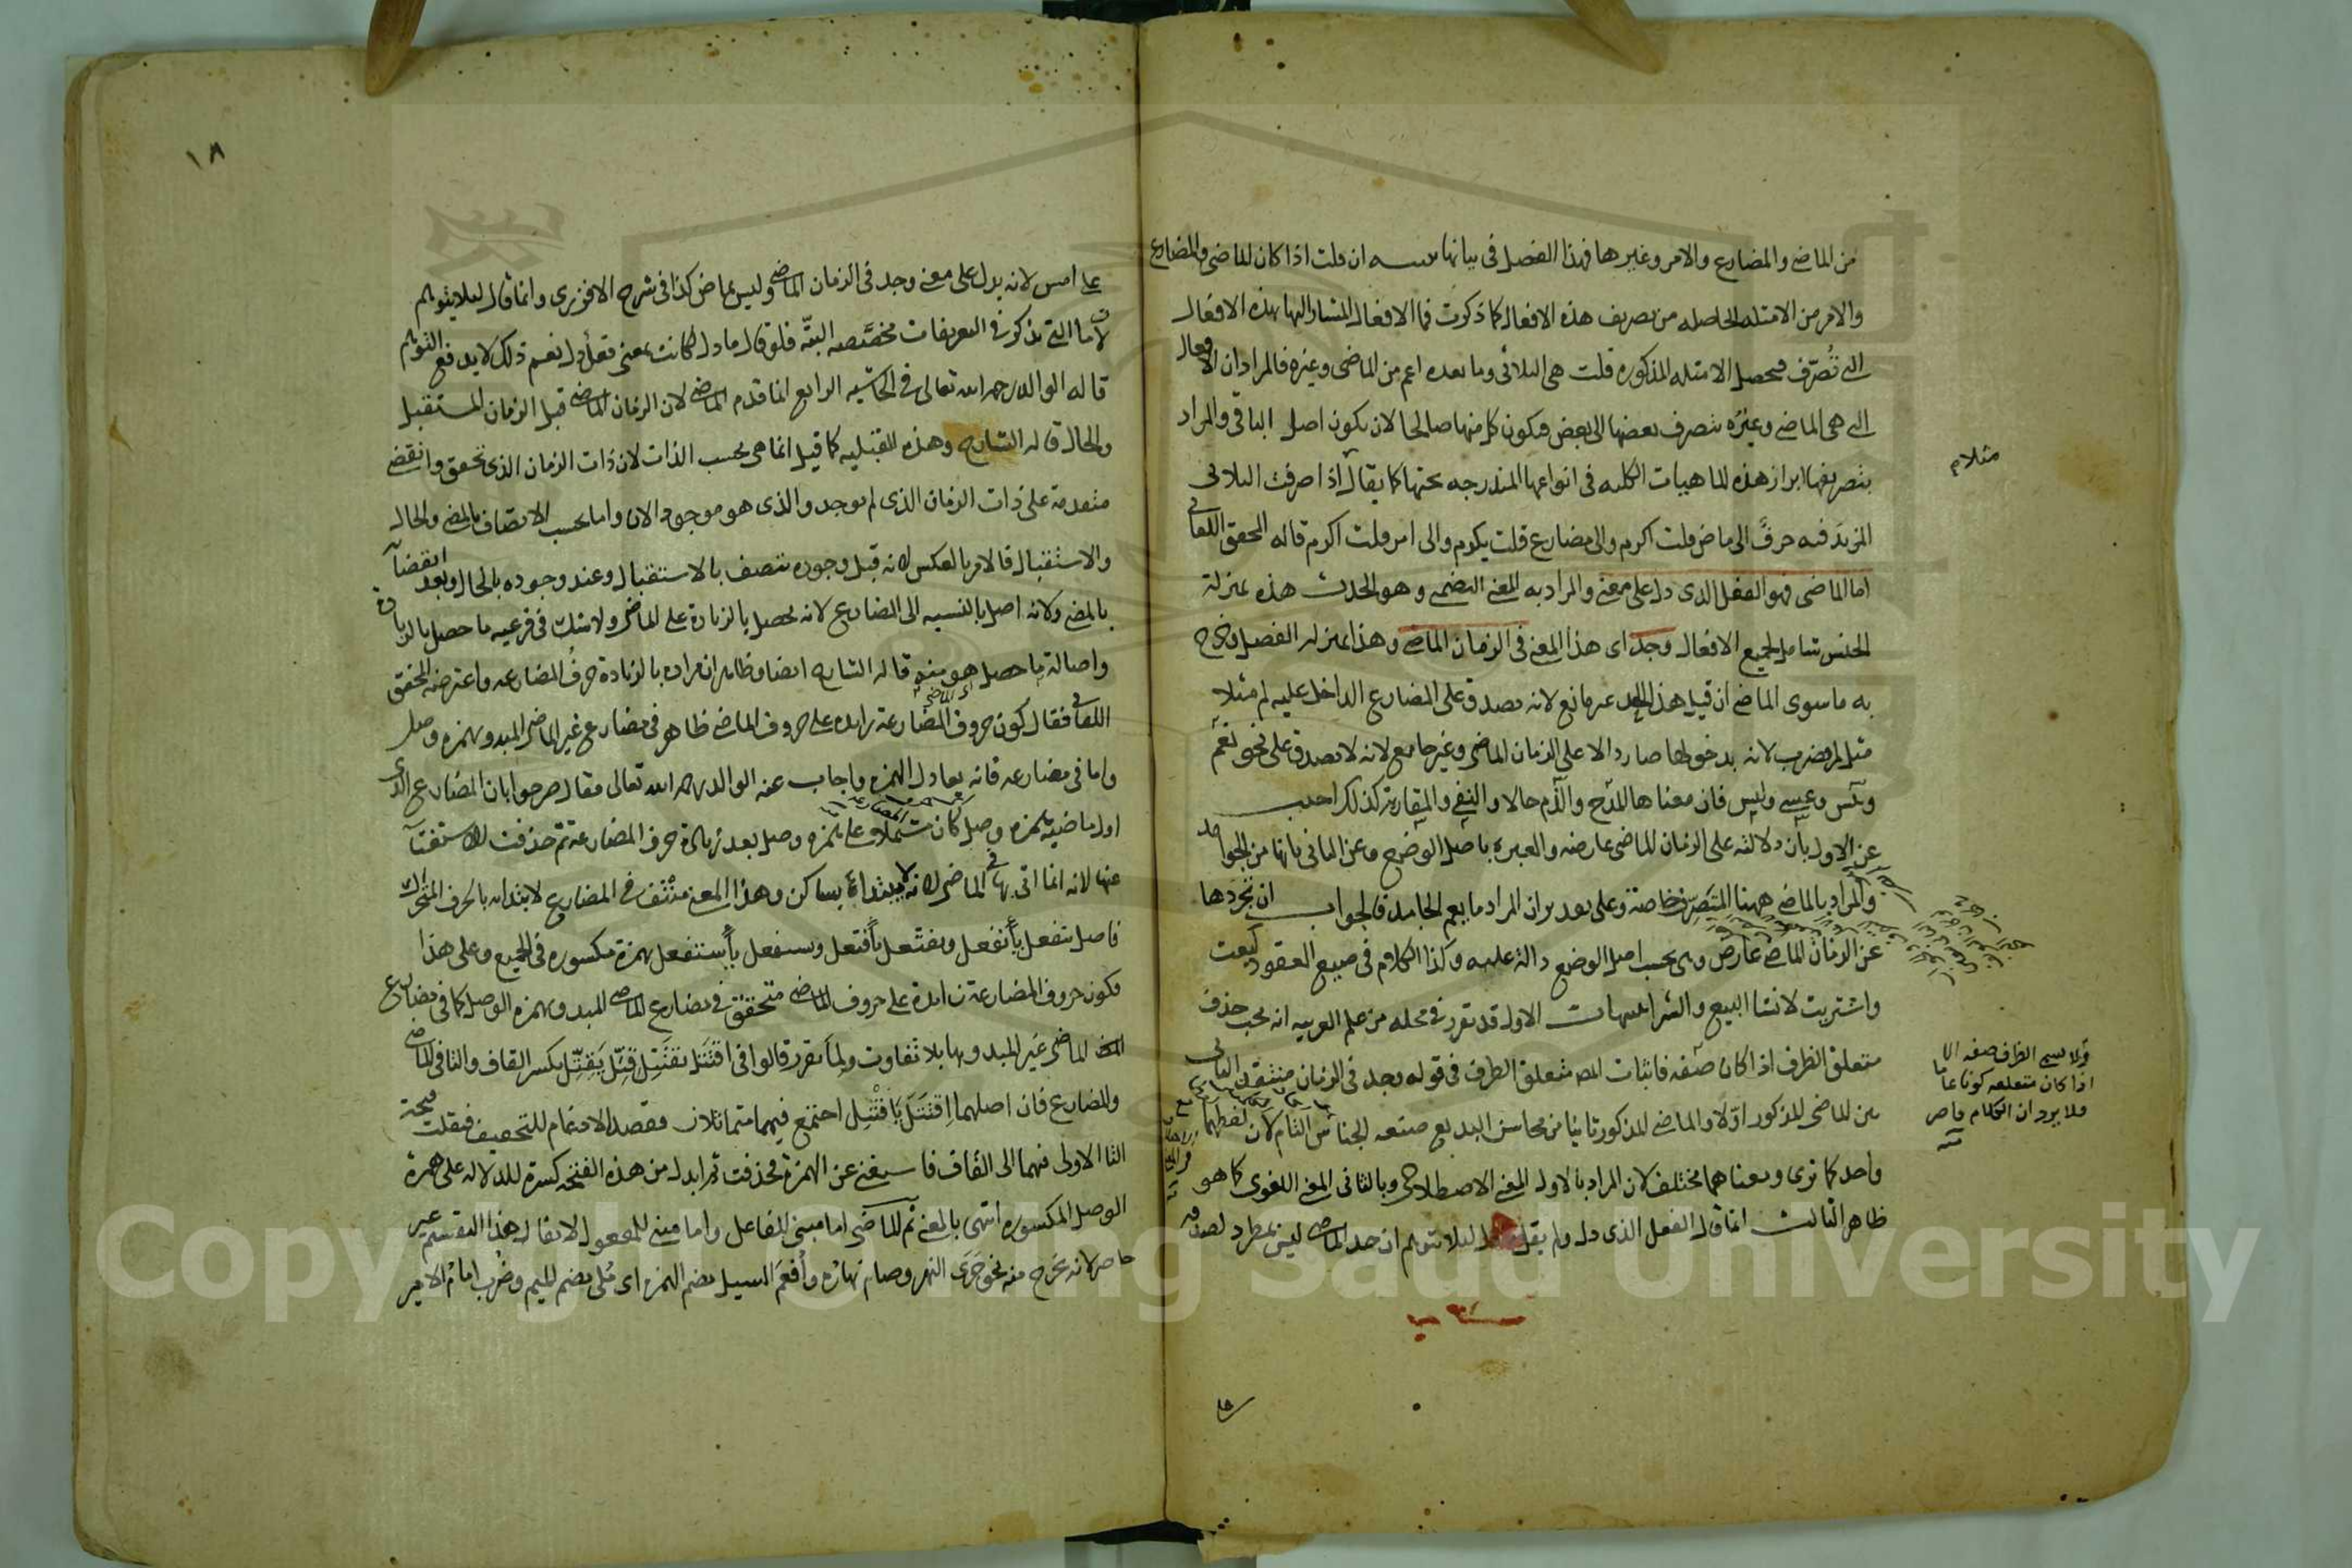 من الماضي والمضارع والامر وغيرها فهذا الفصل في بيانها تنبيه ان قلت اذا كان الماضي والمضارع
والامر من الامثلة الحاصله من تصريف هذه الافعال كما ذكرت فما الافعال المشار اليها بهذه الافعال
التي تُصرّف فيحصل الامثله المذكوره قلت هي الثلاثي وما بعده اعم من الماضي وغيره فالمراد ان الافعال
التي هي الماضي وغيره تتصرف بعضها الى بعض فيكون كل منها صالحا لان يكون اصل الباقي والمراد
بتصريفها ابراز هذه الماهيات الكليه في انواعها المندرجه تحتها كما يقال اذا صرفت الثلاثي
مثلا م
المزيد فيه حرف الى ماض قلت اكرم والى مضارع قلت يكرم والى امر قلت اكرم قاله المحقق اللقاني
اما الماضي فهو الفعل الذي دل على معنى والمراد به المعنى التضمني وهو الحدث هذه بمنزلة
الجنس شامل لجميع الافعال وجد اى هذا المعنى في الزمان الماضي وهذا بمنزله الفصل يخرج
به ما سوى الماضي ان قيل هذا الحد غير مانع لانه يصدق على المضارع الداخل عليه لم مثلا
مثل لم يضرب لانه بدخولها صار دالا على الزمان الماضي وغير جامع لانه لا يصدق على نحو نعم
وبئس وعسى وليس فان معناها المدح والذم حالا والنفي والمقاربة كذلك اجيب
عن الاول بان دلالته على الزمان الماضي عارضه والعبرة باصل الوضع وعن الثاني بانها من الجوامد
والمراد بالماضي ههنا المتصرف خاصة وعلى تقدير ان المراد ما يعم الجامد فالجواب ان تجردها
عن الزمان الماضي عارض وهي بحسب اصل الوضع دالة عليه وكذا الكلام في صيغ العقود كبعت
واشتريت لانشا البيع والشرا تنبيهات الاول قد تقرر في محله من علم العربيه انه يجب حذف
متعلق الظرف اذا كان صفه فاثبات المص متعلق الظرف في قوله وجد في الزمان منتقد الثاني
ولا يسمى الظرف صفه الا
اذا كان متعلقه كونا عاما
فلا يرد ان الكلام قاصر
بين الماضي المذكور اوّلا والماضي المذكور ثانيا من محاسن البديع صنعه الجناس التام لان لفظهما
واحد كما ترى ومعناهما مختلف لان المراد بالاول المعنى الاصطلاحي وبالثاني المعنى اللغوي كما هو
ظاهر الثالث انما قال الفعل الذي دل ولم يقل لئلا يتوهم ان حد الماضي ليس بمطرد لصدقه
١٨
على امس لانه يدل على معنى وجد في الزمان الماضي وليس بماض كذا في شرح الافزري وانما قال لئلا يتوهم
لان ما التي تذكر في التعريفات مخصّصه البتّه فلو قال ما دل لكانت بمعنى فعل دل نعم ذلك لا يدفع التوهم
قاله الوالد رحمه الله تعالى في الحاشيه الرابع انما قدم الماضي لان الزمان الماضي قبل الزمان المستقبل
والحال قاله الشارح وهذه القبليه كما قيل انما هي بحسب الذات لان ذات الزمان الذي تحقق وانقضى
متقدمة على ذات الزمان الذي لم يوجد والذي هو موجود الان واما بحسب الاتصاف بالمضي والحال
والاستقبال فالامر بالعكس لانه قبل وجوده يتصف بالاستقبال وعند وجوده بالحال وبعد انقضائه
بالمضي ولانه اصل بالنسبه الى المضارع لانه يحصل بالزيادة على الماضي ولا شك في فرعيه ما حصل بالزيادة
واصالة ما حصل هو منه قاله الشارح ايضا وظاهر ان مراده بالزيادة حرف المضارعه واعترضه المحقق
اللقاني فقال كون حروف المضارعة زايده على حروف الماضي ظاهر في مضارع غير الماضي المبدو بهمزه وصل
واما في مضارعه فانه يعادل الهمزه واجاب عنه الوالد رحمه الله تعالى فقال صرحوا بان المضارع الذي
اول ماضيه همزه وصل كان مشتملا على همزه وصل بعد زيادة حرف المضارعة ثم حذفت للاستغناء
عنها لانه انما اتى بها في الماضي لانه لا يبتداء بساكن وهذا المعنى منتف في المضارع لابتدائه بالحرف المتحرك
فاصل ينفعل يأنفعل ويفتعل يأفتعل ويستفعل يأستفعل بهمزة مكسوره في الجميع وعلى هذا
فكون حروف المضارعة زايدة على حروف الماضي متحقق في مضارع الماضي المبدو بهمزه الوصل كما في مضارع
الماضي غير المبدو بها بلا تفاوت ولما تقرر قالوا في اقتتل يقتتل قتّل يقتّل بكسر القاف والتا في الماضي
والمضارع فان اصلهما اقتتل يأقتتل اجتمع فيهما متماثلان فقصد الادغام للتخفيف فنقلت فتحة
التا الاولى فيهما الى القاف فاستغنى عن الهمزة فحذفت ثم ابدل من هذه الفتحه كسرة للدلاله على همزة
الوصل المكسوره انتهى بالمعنى ثم الماضي اما مبني للفاعل واما مبني للمفعول لا يقال هذا التقسيم غير
حاصر لانه يخرج منه نحو جرى النهر وصام نهاره وأُفعم السيل بضم الهمزه اى مُلئ بضم الميم وضُرب امام الامير
Copyright © King Saud University